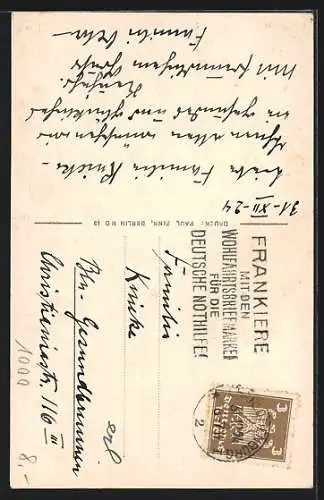 31-XII-24
Liebe Familie Knicke
Ihnen allen wünschen wir
ein gesundes und glückliches
Neujahr.
Mit freundlichem Gruß
Familie
DRUCK: PAUL FINN, BERLIN NO 43
FRANKIERE
MIT DEN
WOHLFAHRTSBRIEFMARKEN
FÜR DIE
DEUTSCHE NOTHILFE!
3 3
2
Familie
Knicke
Bln-Gesundbrunnen
Christianiastr. 116 III
erl
1000
8,-